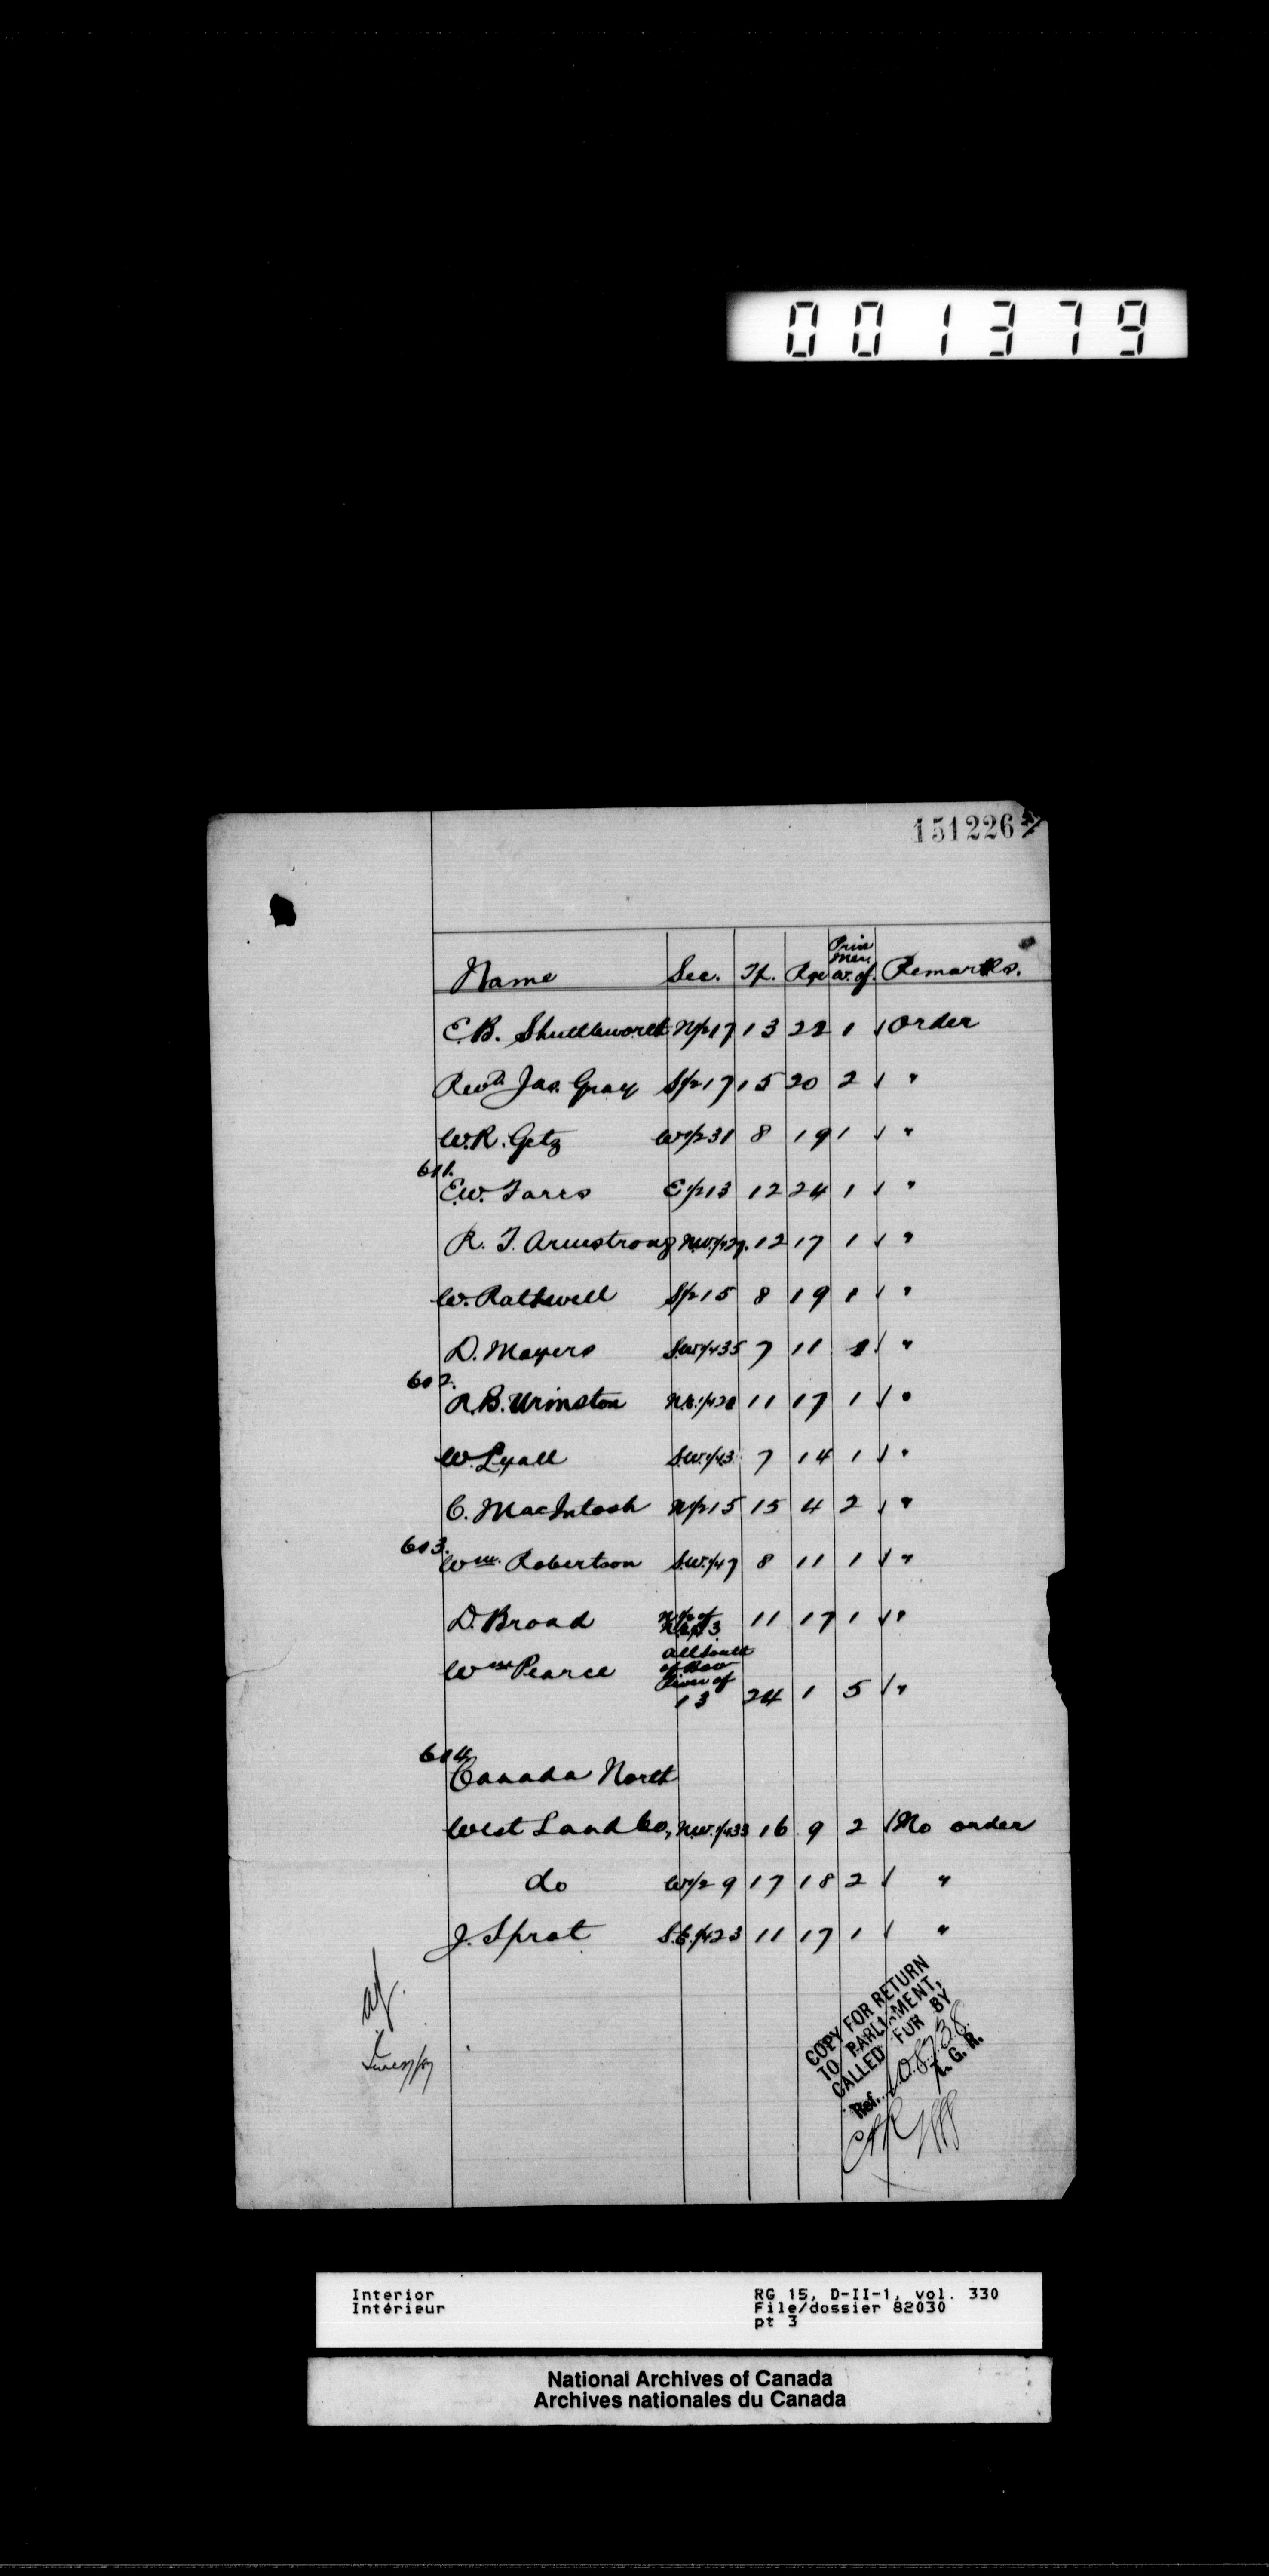 001379
151226
Prin
Mer.
Name Sec. Tp. Rge W. of. Remarks.
E.B. Shuttleworth N1/2 17 13 22 1 ✓ Order
Revd. Jas. Gray S1/2 17 15 20 2 ✓ "
W.R. Getz W1/2 31 8 19 1 ✓ "
601.
E.W. Farrs E1/2 13 12 24 1 ✓ "
R. J. Armstrong N.W.1/4 27. 12 17 1 ✓ "
W. Rathwell S1/2 15 8 19 1 ✓ "
D. Mayers S.W.1/4 35 7 11 1 ✓ "
602.
R.B. Urmston N.E.1/4 28 11 17 1 ✓ "
W. Lyall S.W.1/4 3 7 14 1 ✓ "
C. MacIntosh N1/2 15 15 4 2 ✓ "
603.
Wm. Robertson S.W.1/4 7 8 11 1 ✓ "
D. Broad N1/2 of 11 17 1 ✓ "
3
Wm Pearce All South
of Bow
River of
13 24 1 5 ✓ "
604
Canada North
West Land Co, N.W.1/4 33 16 9 2 ✓ No order
do W1/2 9 17 18 2 ✓ "
J. Sprot S.E.1/4 23 11 17 1 ✓ "
COPY FOR RETURN
TO PARLIAMENT,
CALLED FOR BY
Ref. 108738
L. G. R.
Interior
Intérieur
RG 15, D-II-1, vol. 330
File/dossier 82030
pt 3
National Archives of Canada
Archives nationales du Canada